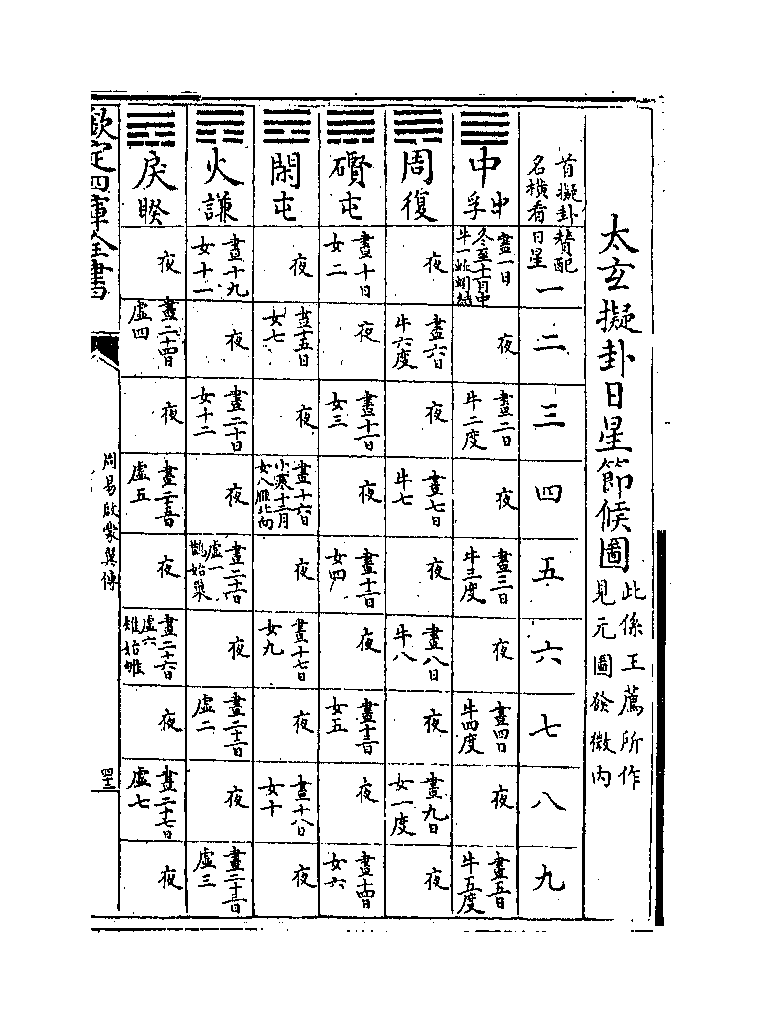 太玄擬卦日星節候圖
此係王薦所作
見元圖發微内
首擬卦
名橫看
贊配
日星
一
二
三
四
五
六
七
八
九
中
中孚
晝一日
冬至十一月中
牛一蚯蚓結
夜
晝二日
牛二度
夜
晝三日
牛三度
夜
晝四日
牛四度
夜
晝五日
牛五度
周復
夜
晝六日
牛六度
夜
晝七日
牛七
夜
晝八日
牛八
夜
晝九日
女一度
夜
礥屯
晝十日
女二
夜
晝十一日
女三
夜
晝十二日
女四
夜
晝十三日
女五
夜
晝十四日
女六
閑屯
夜
晝十五日
女七
夜
晝十六日
小寒十二月
女八雁北向
夜
晝十七日
女九
夜
晝十八日
女十
夜
火謙
晝十九
女十一
夜
晝二十日
女十二
夜
晝二十一日
虛一
鵲始巢
夜
晝二十二日
虛二
夜
晝二十三日
虛三
戾睽
夜
晝二十四日
虛四
夜
晝二十五日
虛五
夜
晝二十六日
虛六
雉始雊
夜
晝二十七日
虛七
夜
欽定四庫全書
周易啟蒙翼傳